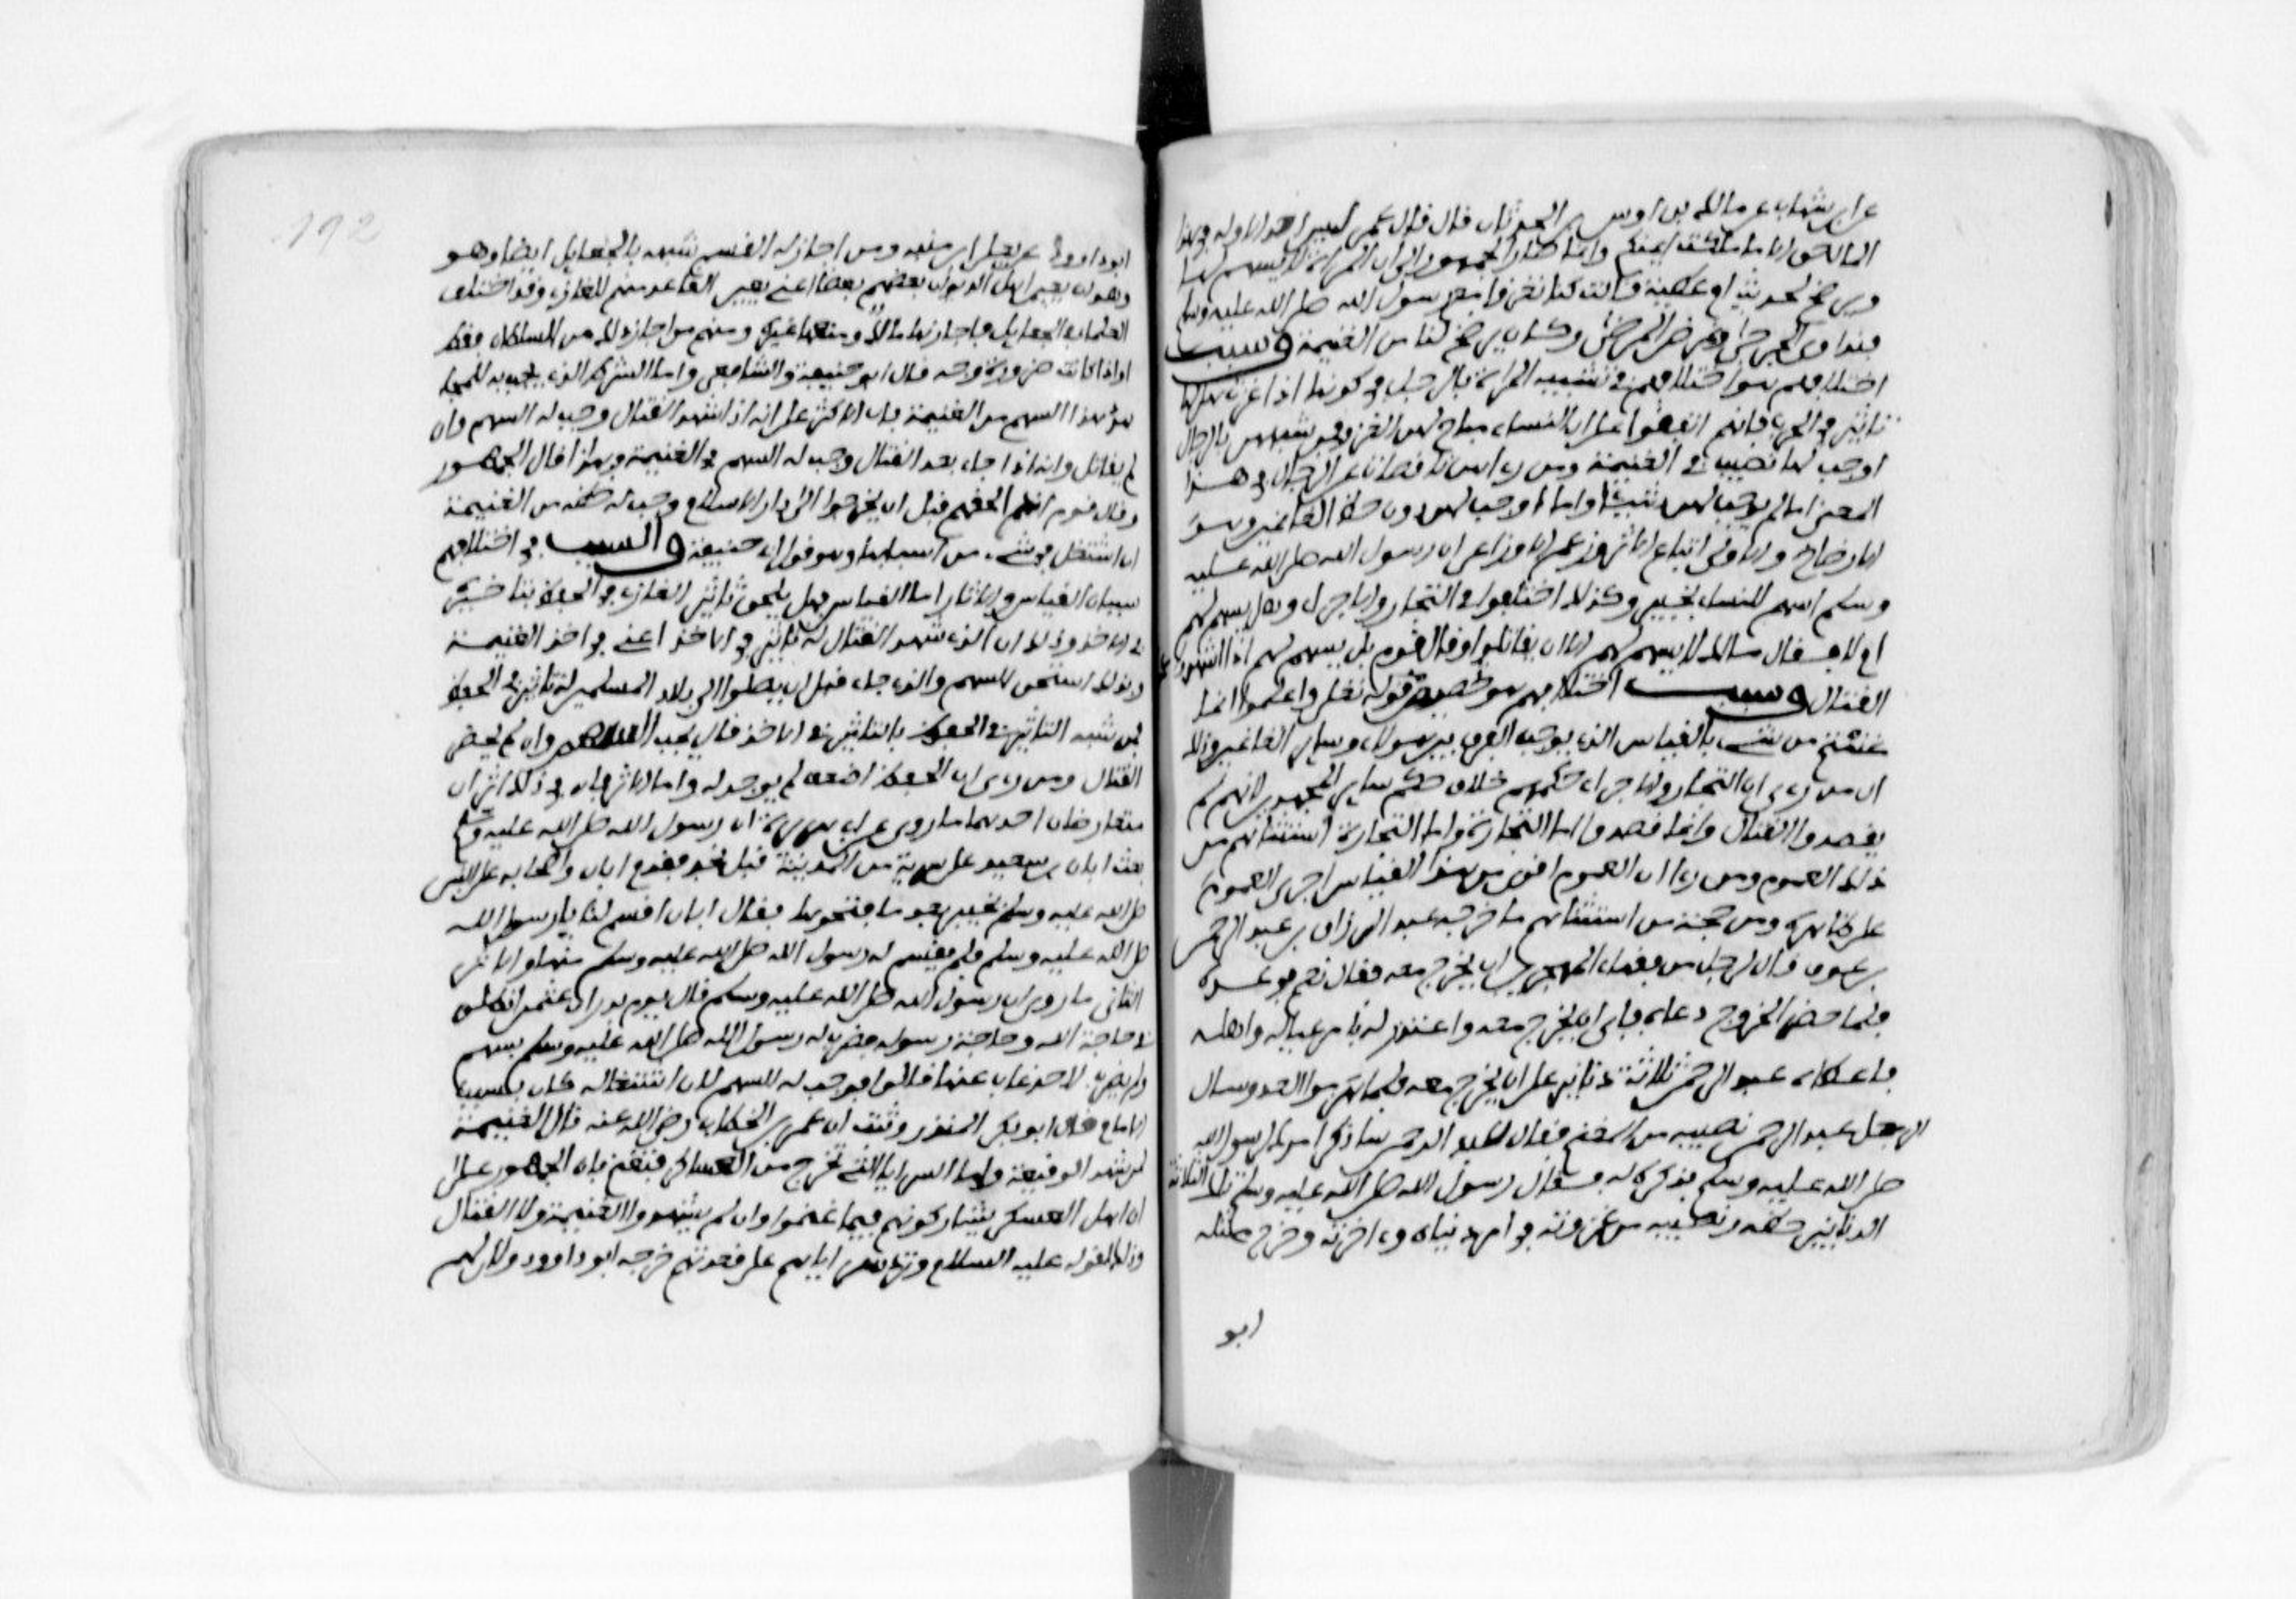 عن ابن شهاب عن مالك بن اوس بن الحدثان قال قال عمر ليس احد الا وله في هذا
المال حق الا ما ملكت ايمنكم وانما صار الجمهور الى ان المراة لا يسهم لها
ويرضخ لحديث ام عطية قالت كنا نغزوا مع رسول الله صلى الله عليه وسلم
فنداوي الجرحى ونمرض المرضى وكان يرضخ لنا من الغنيمة وسبب
اختلافهم هو اختلافهم في تشبيه المراة بالرجل في كونها اذا غزت هل لها
تاثير في الحرب فانهم اتفقوا على ان النساء مباح لهن الغزو فمن شبههن بالرجال
اوجب لها نصيب في الغنيمة ومن رءاهن ناقصات عن الرجال في هذا
المعنى اما لم يوجب لهن شيئا واما اوجب لهن دون حظ الغانمين وهو
الارضاخ والاولى اتباع الاثر وزعم الاوزاعي ان رسول الله صلى الله عليه
وسلم اسهم للنساء بخيبر وكذلك اختلفوا في التجار والاجراء هل يسهم لهم
ام لا فقال مالك لا يسهم لهم الا ان يقاتلوا وقال قوم بل يسهم لهم اذا شهدوا
القتال وسبب اختلافهم هو تخصيص قوله تعلى واعلموا انما
غنمتم من شيء بالقياس الذي يوجب الفرق بين هولاء وساير الغانمين وذلك
ان من رءى ان التجار والاجراء حكمهم خلاف حكم ساير المجاهدين لانهم لم
يقصدوا القتال وانما قصدوا اما التجارة واما التجارة استثناهم من
ذلك العموم ومن رءا ان العموم اقوى من هذا القياس اجرى العموم
على ظاهره ومن حجة من استثناهم ما خرجه عبد الرزاق بن عبد الرحمن
بن عوف قال لرجل من فقراء المهجرين ان يخرج معه فقال نعم فوعده
فلما حضر الخروج دعاه فابى ان يخرج معه واعتذر له بامر عياله واهله
فاعطاه عبد الرحمن ثلاثة دنانير على ان يخرج معه فلما هزموا العدو سال
الرجل عبد الرحمن نصيبه من المغنم فقال عبد الرحمن ساذكر امرك لرسول الله
صلى الله عليه وسلم فذكره له فقال رسول الله صلى الله عليه وسلم تلك الثلاثة
الدنانير حظه ونصيبه من غزوته في امر دنياه وءاخرته وخرج مثله
ابو
192
ابو داوود عن يعلى ابن منبه ومن اجاز له القسم شبهه بالجعايل ايضا وهو
وهو ان يعين اهل الديوان بعضهم بعضا اعني يعين القاعد منهم للغازي وقد اختلف
العلماء في الجعايل فاجازها مالك ومنعها غيره ومنهم من اجاز ذلك من السلطان فقط
او اذا كانت ضرورة وبه قال ابو حنيفة والشافعي واما الشرط الذي يجب به للمجاهد
هذا السهم من الغنيمة فان الاكثر على انه اذا شهد القتال وجب له السهم وان
لم يقاتل وانه اذا جاء بعد القتال وجب له السهم في الغنيمة وبهذا قال الجمهور
وقال قوم اذا لحقهم قبل ان يخرجوا الى دار الاسلام وجب له حظه من الغنيمة
ان اشتغل في شيء من اسبابها وهو قول ابي حنيفة والسبب في اختلافهم
سببان القياس والاثار اما القياس فهل يلحق تاثير الغازي في الحفظ بتاثيره
في الاخذ وذلك ان الذي شهد القتال له تاثير في الاخذ اعني في اخذ الغنيمة
وبذلك استحق السهم والذي جاء قبل ان يصلوا الى بلاد المسلمين له تاثير في الحفظ
فمن شبه التاثير في الحفظ بالتاثير في الاخذ قال يجب السهم وان لم يحضر
القتال ومن رءى ان الحفظ اضعف لم يوجب له واما الاثر فان في ذلك اثران
متعارضان احدهما ما روي عن ابي هريرة ان رسول الله صلى الله عليه وسلم
بعث ابان بن سعيد على سرية من المدينة قبل نجد فقدم ابان واصحابه على النبي
صلى الله عليه وسلم بخيبر بعد ما فتحوها فقال ابان اقسم لنا يا رسول الله
صلى الله عليه وسلم فلم يقسم له رسول الله صلى الله عليه وسلم منها والاثر
الثاني ما روي ان رسول الله صلى الله عليه وسلم قال يوم بدر ان عثمن انطلق
في حاجة الله وحاجة رسوله فضرب له رسول الله صلى الله عليه وسلم بسهم
ولم يضرب لاحد غاب عنها قالوا فوجب له السهم لان اشتغاله كان بسبب
الامام قال ابو بكر المنذر وثبت ان عمر بن الخطاب رضي الله عنه قال الغنيمة
لمن شهد الوقيعة واما السرايا التي تخرج من العساكر فتغنم فان الجمهور على
ان اهل العسكر يشاركونهم فيما غنموا وان لم يشهدوا الغنيمة ولا القتال
وذلك لقوله عليه السلام وترد سراياهم على قعدتهم خرجه ابو داوود ولان لهم